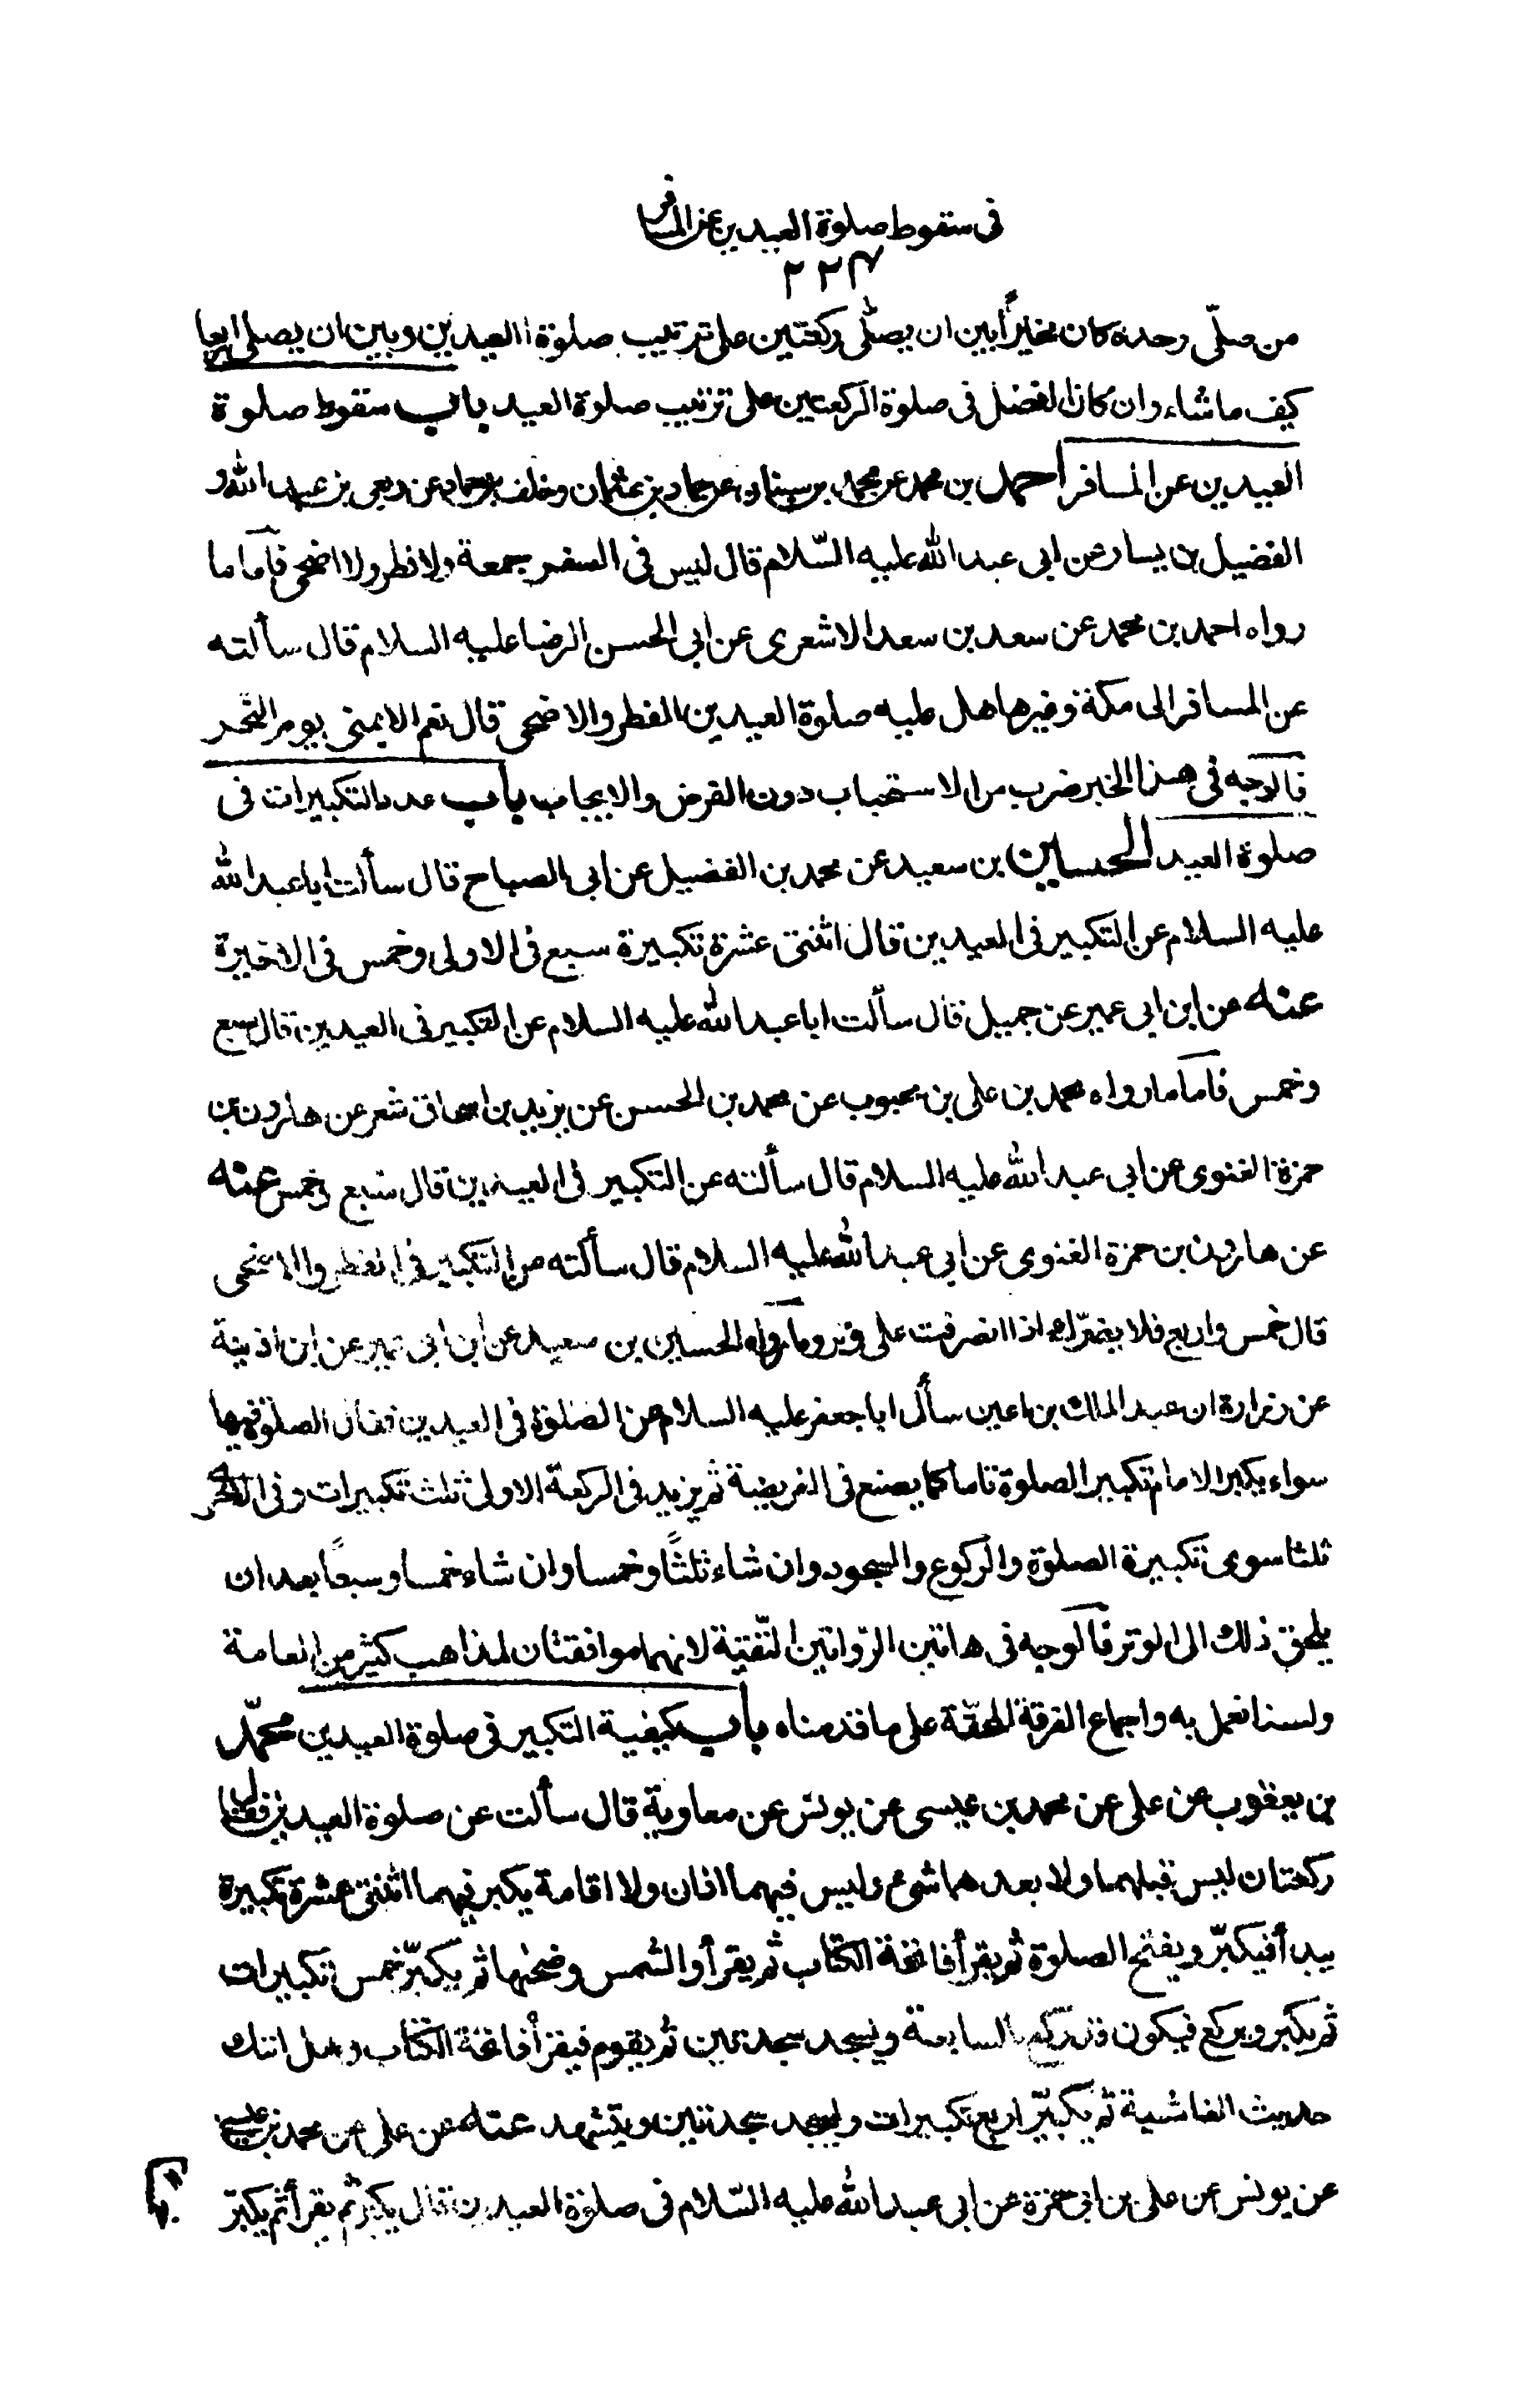 فى سقوط صلوة العيدين عن المسافر
٢٢٣
من صلّى وحده كان مخيراً بين ان يصلّى ركعتين على ترتيب صلوة العيدين وبين ان يصلى اربعا
كيف ما شاء وان كان الفضل فى صلوة الركعتين على ترتيب صلوة العيد باب سقوط صلوة
العيدين عن المسافر احمد بن محمد عن محمد بن سنان عن حماد بن عثمان وخلف بن حماد عن ربعى بن عبد الله و
الفضيل بن يسار عن ابى عبد الله عليه السّلام قال ليس فى السفر جمعة ولا فطر ولا اضحى فآما ما
رواه احمد بن محمد عن سعد بن سعد الاشعرى عن ابى الحسن الرضا عليه السلام قال سألته
عن المسافر الى مكة وغيرها هل عليه صلوة العيدين الفطر والاضحى قال نعم الا بمنى يوم النّحر
فالوجه فى هذا الخبر ضرب من الاستحباب دون الفرض والايجاب باب عدد التكبيرات فى
صلوة العيد الحسين بن سعيد عن محمد بن الفضيل عن ابى الصباح قال سألت ابا عبد الله
عليه السلام عن التكبير فى العيدين قال اثنتى عشرة تكبيرة سبع فى الاولى وخمس فى الاخيرة
عنه عن ابن ابى عمير عن جميل قال سألت ابا عبد الله عليه السلام عن التكبير فى العيدين قال سبع
وخمس فاما ما رواه محمد بن على بن محبوب عن محمد بن الحسن عن يزيد بن اسحاق شعر عن هارون بن
حمزة الغنوى عن ابى عبد الله عليه السلام قال سألته عن التكبير فى العيدين قال سبع وخمس عنه
عن هارون بن حمزة الغنوى عن ابى عبد الله عليه السلام قال سألته عن التكبير فى الفطر والاضحى
قال خمس واربع فلا يضرّك اذا انصرفت على وتر وما رواه الحسين بن سعيد عن ابن ابى عمير عن ابن اذينة
عن زرارة ان عبد الملك بن اعين سأل ابا جعفر عليه السلام عن الصلوة فى العيدين فقال الصلوة فيهما
سواء يكبر الامام تكبير الصلوة تاما كما يصنع فى الفريضة ثم يزيد فى الركعة الاولى ثلث تكبيرات وفى الاخرى
ثلثا سوى تكبيرة الصلوة والركوع والسجود وان شاء ثلثًا وخمسا وان شاء خمسا وسبعًا بعد ان
يلحق ذلك الى الوتر فالوجه فى هاتين الرّوايتين التّقية لانهما موافقتان لمذاهب كثير من العامة
ولسنا نعمل به واجماع الفرقة المحقّة على ما قدمناه باب كيفية التكبير فى صلوة العيدين محمّد
بن يعقوب عن على عن محمد بن عيسى عن يونس عن معاوية قال سألت عن صلوة العيدين فقال
ركعتان ليس قبلهما ولا بعدهما شىء وليس فيهما اذان ولا اقامة يكبر فيهما اثنتى عشرة تكبيرة
يبدأ فيكبّر ويفتتح الصلوة ثم يقرأ فاتحة الكتاب ثم يقرأ والشمس وضحٰها ثم يكبّر خمس تكبيرات
ثم يكبر ويركع فيكون قد ركع بالسابعة ويسجد سجدتين ثم يقوم فيقرأ فاتحة الكتاب وهل اتٰك
حديث الغاشية ثم يكبّر اربع تكبيرات ويسجد سجدتين ويتشهد عنه عن على عن محمد بن عيسى
عن يونس عن على بن ابى حمزة عن ابى عبد الله عليه السّلام فى صلوة العيدين قال يكبر ثم يقرأ ثم يكبّر